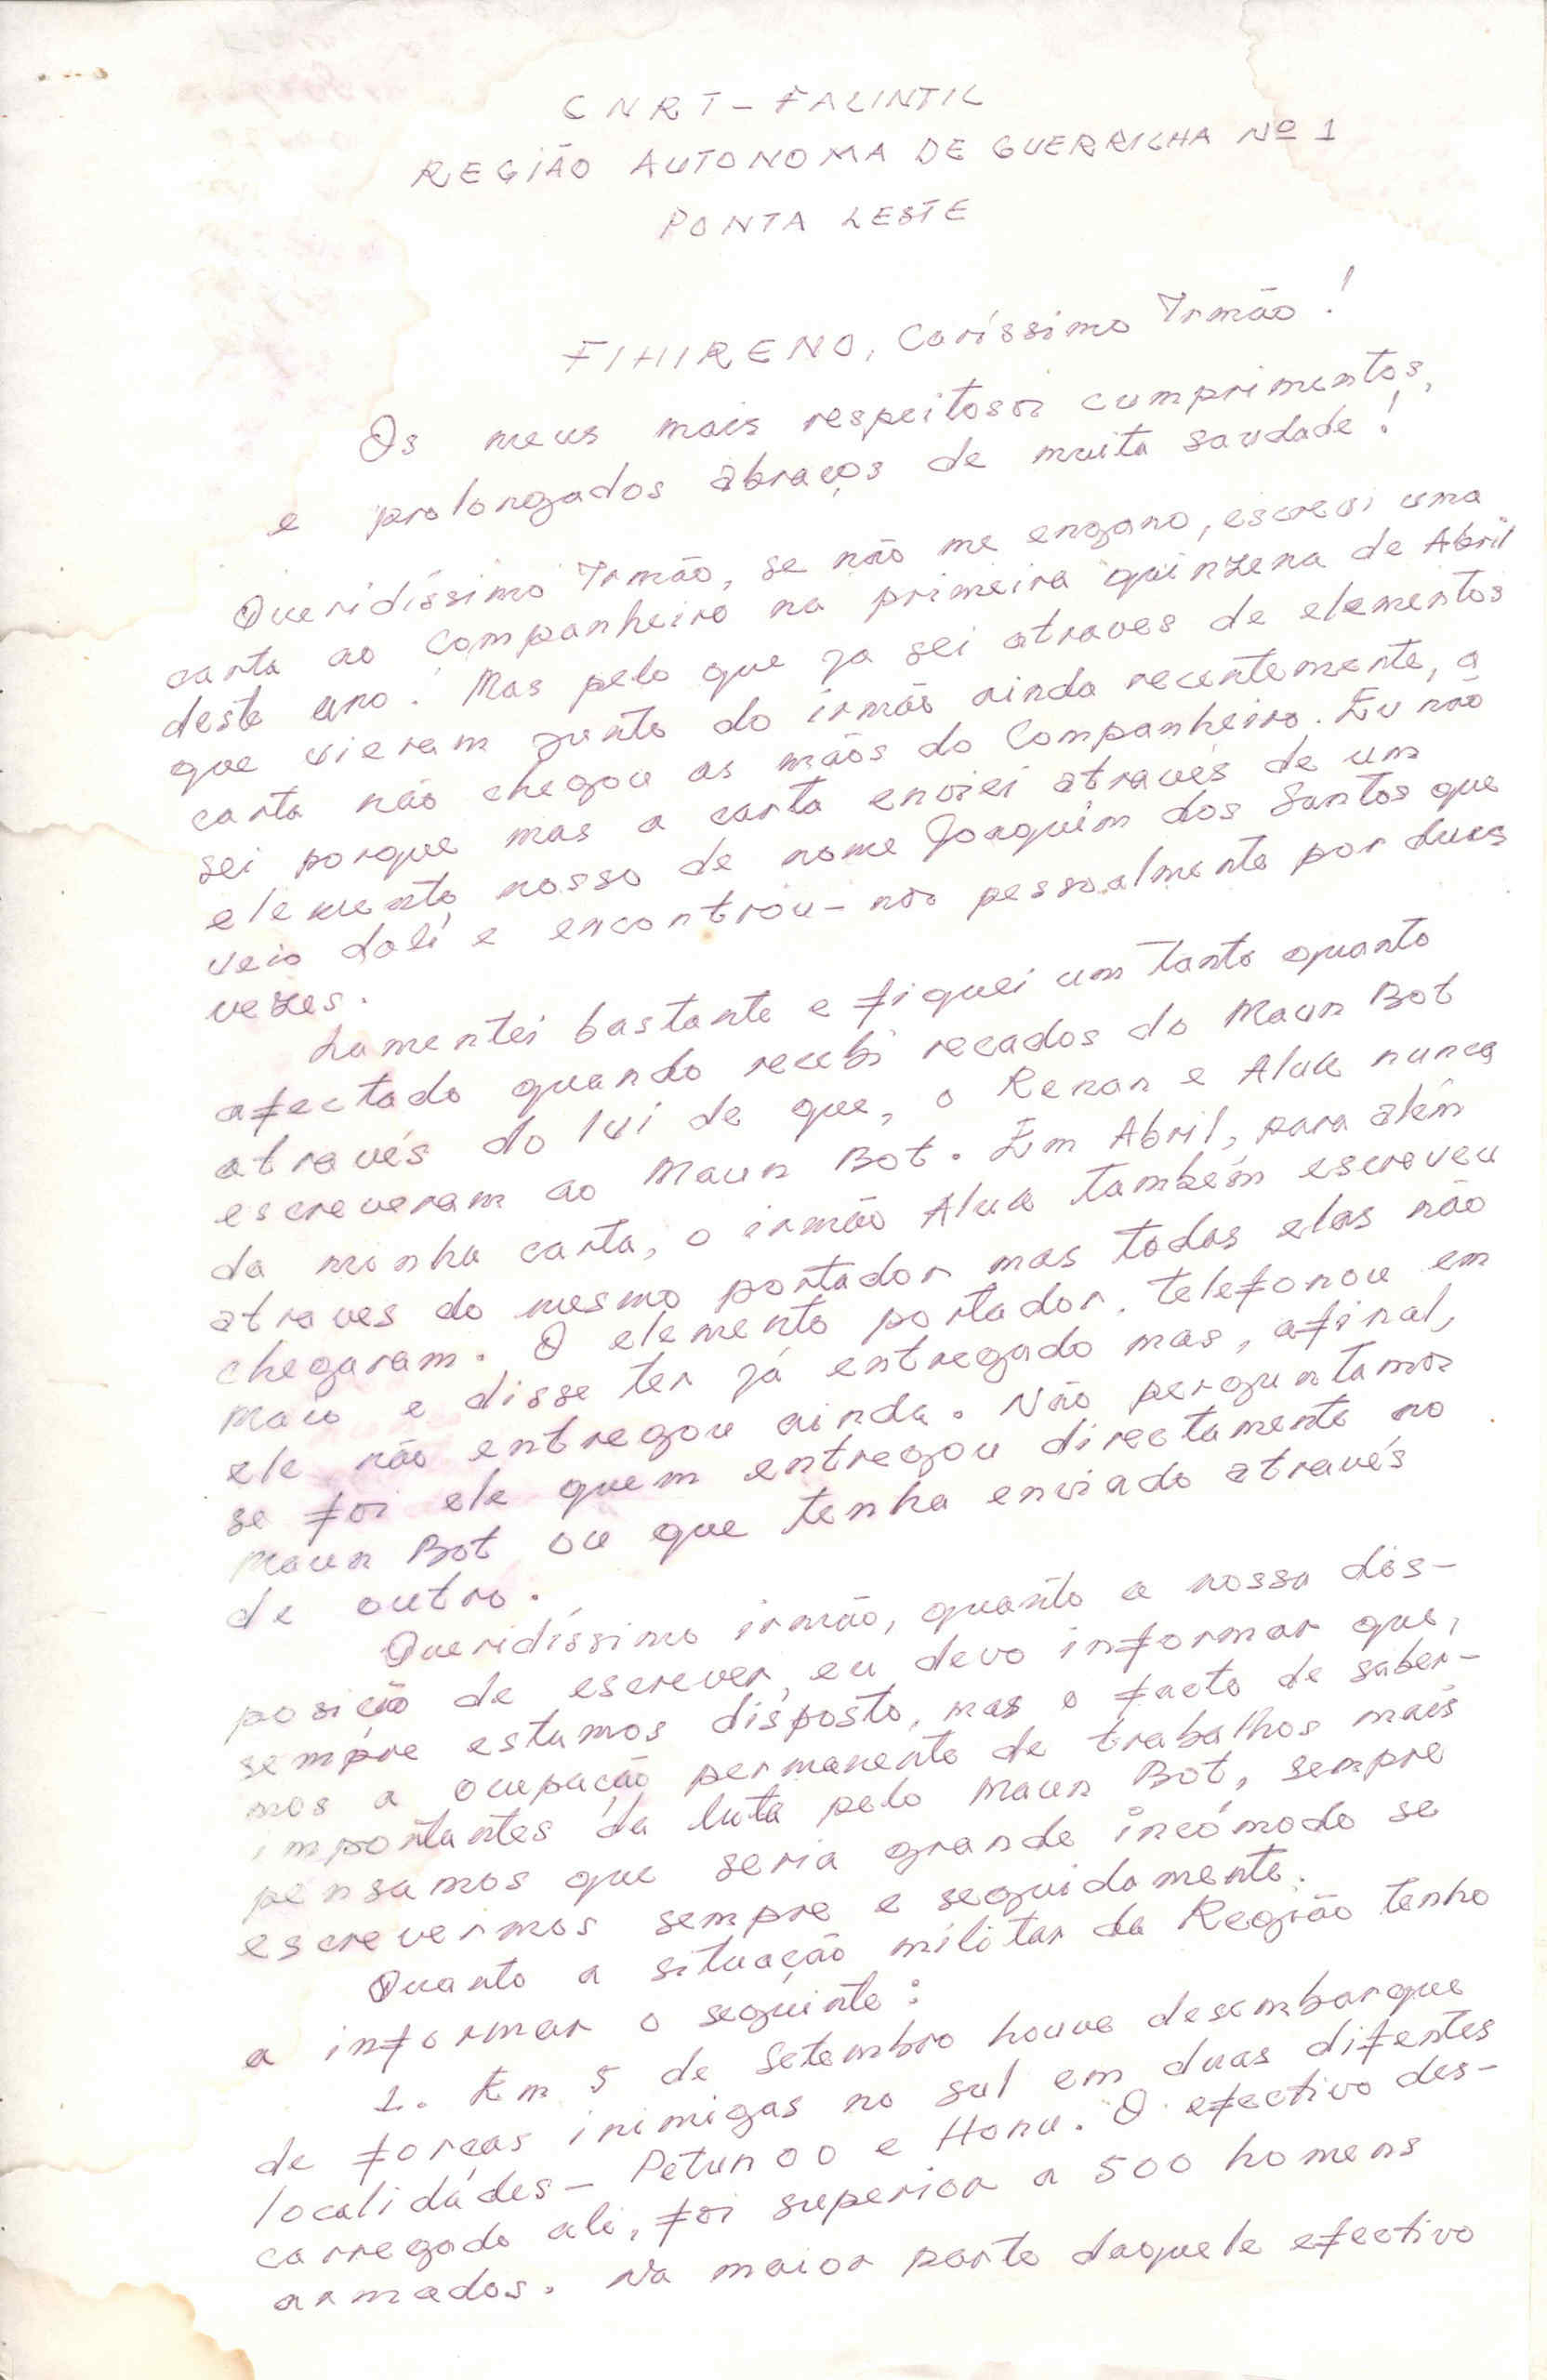 CNRT - FALINTIL
REGIÃO AUTONOMA DE GUERRILHA Nº 1
PONTA LESTE
FIHIRENO, Caríssimo Irmão!
Os meus mais respeitosos cumprimentos,
e prolongados abraços de muita saudade!
Queridíssimo Irmão, se não me engano, escrevi uma
carta ao Companheiro na primeira quinzena de Abril
deste ano. Mas pelo que ja sei atraves de elementos
que vieram junto do irmão ainda recentemente, a
carta não chegou as mãos do Companheiro. Eu não
sei porque mas a carta enviei através de um
elemento nosso de nome Joaquim dos Santos que
veio dali e encontrou-nos pessoalmente por duas
vezes.
Lamentei bastante e fiquei um tanto quanto
afectado quando recebi recados do Maun Bot
através do Iui de que, o Renan e Aluk nunca
escreveram ao Maun Bot. Em Abril, para além
da minha carta, o irmão Aluk também escreveu
atraves do mesmo portador mas todas elas não
chegaram. O elemento portador, telefonou em
Maio e disse ter já entregado mas, afinal,
ele não entregou ainda. Não perguntamos
se foi ele quem entregou directamente ao
Maun Bot ou que tenha enviado através
de outro.
Queridíssimo irmão, quanto a nossa dis-
posição de escrever, eu devo informar que,
sempre estamos disposto, mas o facto de saber-
mos a ocupação permanente de trabalhos mais
importantes da luta pelo Maun Bot, sempre
pensamos que seria grande incómodo se
escrevermos sempre e seguidamente.
Quanto a situação militar da Região tenho
a informar o seguinte:
1. Em 5 de Setembro houve desembarque
de forças inimigas no sul em duas difentes
localidades - Petunoo e Honu. O efectivo des-
carregado ali, foi superior a 500 homens
armados. Na maior parte daquele efectivo